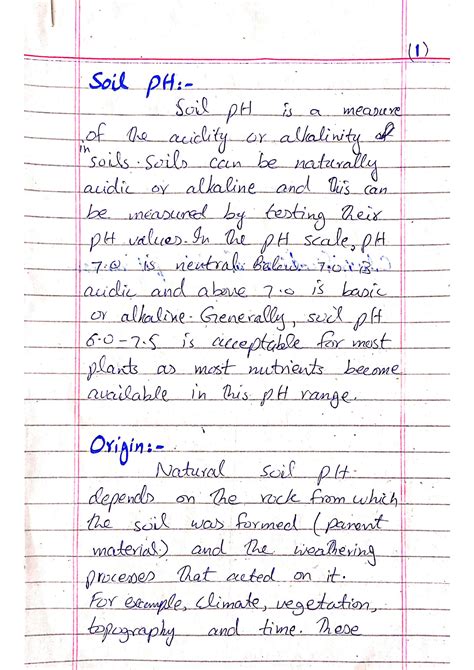 (1)
Soil pH:-
Soil pH is a measure
of the acidity or alkalinity of
in
soils. Soils can be naturally
acidic or alkaline and this can
be measured by testing their
pH values. In the pH scale, pH
7.0 is neutral. Below 7.0 is
acidic and above 7.0 is basic
or alkaline. Generally, soil pH
6.0-7.5 is acceptable for most
plants as most nutrients become
available in this pH range.
Origin:-
Natural soil pH
depends on the rock from which
the soil was formed (parent
material) and the weathering
processes that acted on it.
For example, climate, vegetation,
topography and time. These